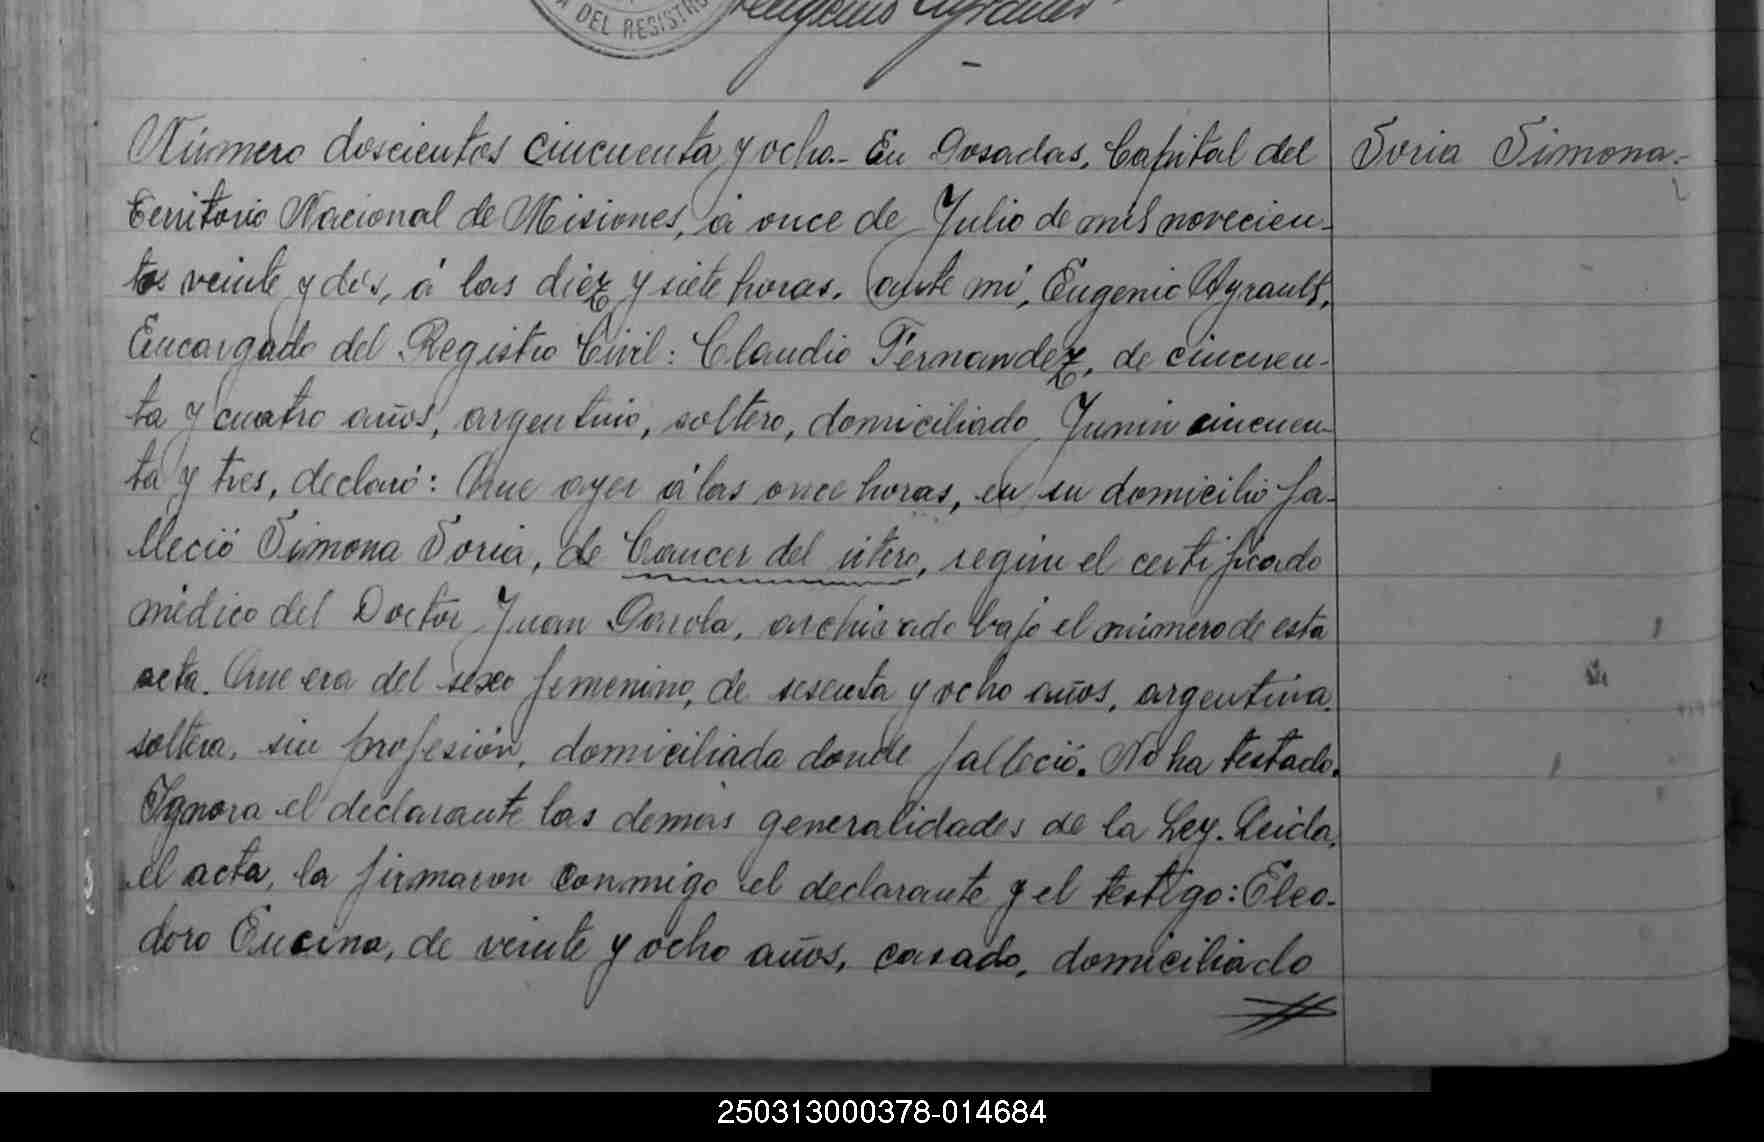 A DEL REGISTRO
Eugenio Ayrault
Número doscientos cincuenta y ocho.- En Posadas, Capital del
Soria Simona.-
territorio Nacional de Misiones, á once de Julio de mil novecien-
tos veinte y dós, á las diéz y siete horas. ante mi, Eugenio Ayrault,
Encargado del Registro Civil: Claudio Fernandez, de cincuen-
ta y cuatro años, argentino, soltero, domiciliado Junin cincuen-
ta y tres, declaró: Que ayer á las once horas, en su domicilio fa-
lleció Simona Soria, de Cancer del útero, según el certificado
médico del Doctor Juan, archivado bajo el número de esta
acta. Que era del sexo femenino, de sesenta y ocho años, argentina,
soltera, sin profesión, domiciliada donde falleció. No ha testado.
Ignora el declarante las demás generalidades de la Ley. Leida,
el acta, la firmaron conmigo el declarante y el testigo: Eleo-
doro Encina, de veinte y ocho años, casado, domiciliado
250313000378-014684